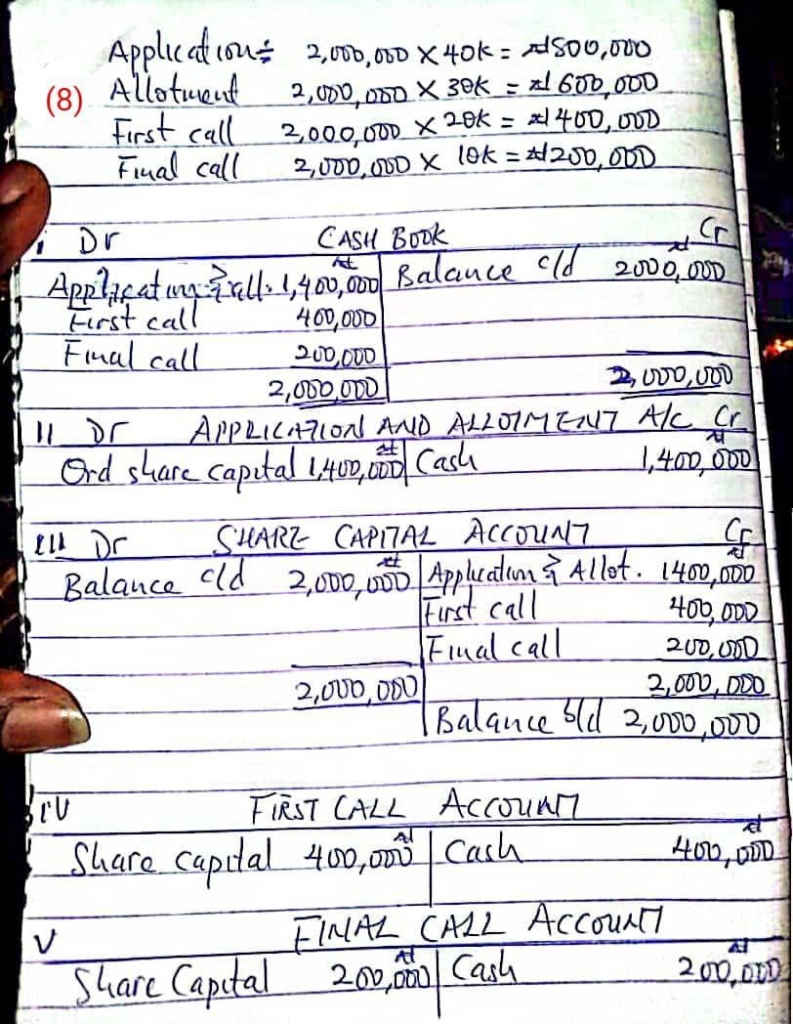 Application ÷ 2,000,000 X 40K = ₦800,000
(8) Allotment 2,000,000 X 30K = ₦600,000
First call 2,000,000 X 20K = ₦400,000
Final call 2,000,000 X 10K = ₦200,000
i Dr CASH BOOK Cr
₦ ₦
Application & all. 1,400,000 Balance c/d 2000,000
First call 400,000
Final call 200,000
2,000,000 2,000,000
II Dr APPLICATION AND ALLOTMENT A/C Cr
₦ ₦
Ord share capital 1,400,000 Cash 1,400,000
III Dr SHARE CAPITAL ACCOUNT Cr
₦ ₦
Balance c/d 2,000,000 Application & Allot. 1400,000
First call 400,000
Final call 200,000
2,000,000 2,000,000
Balance b/d 2,000,000
IV FIRST CALL ACCOUNT
₦ ₦
Share capital 400,000 Cash 400,000
V FINAL CALL ACCOUNT
₦ ₦
Share Capital 200,000 Cash 200,000